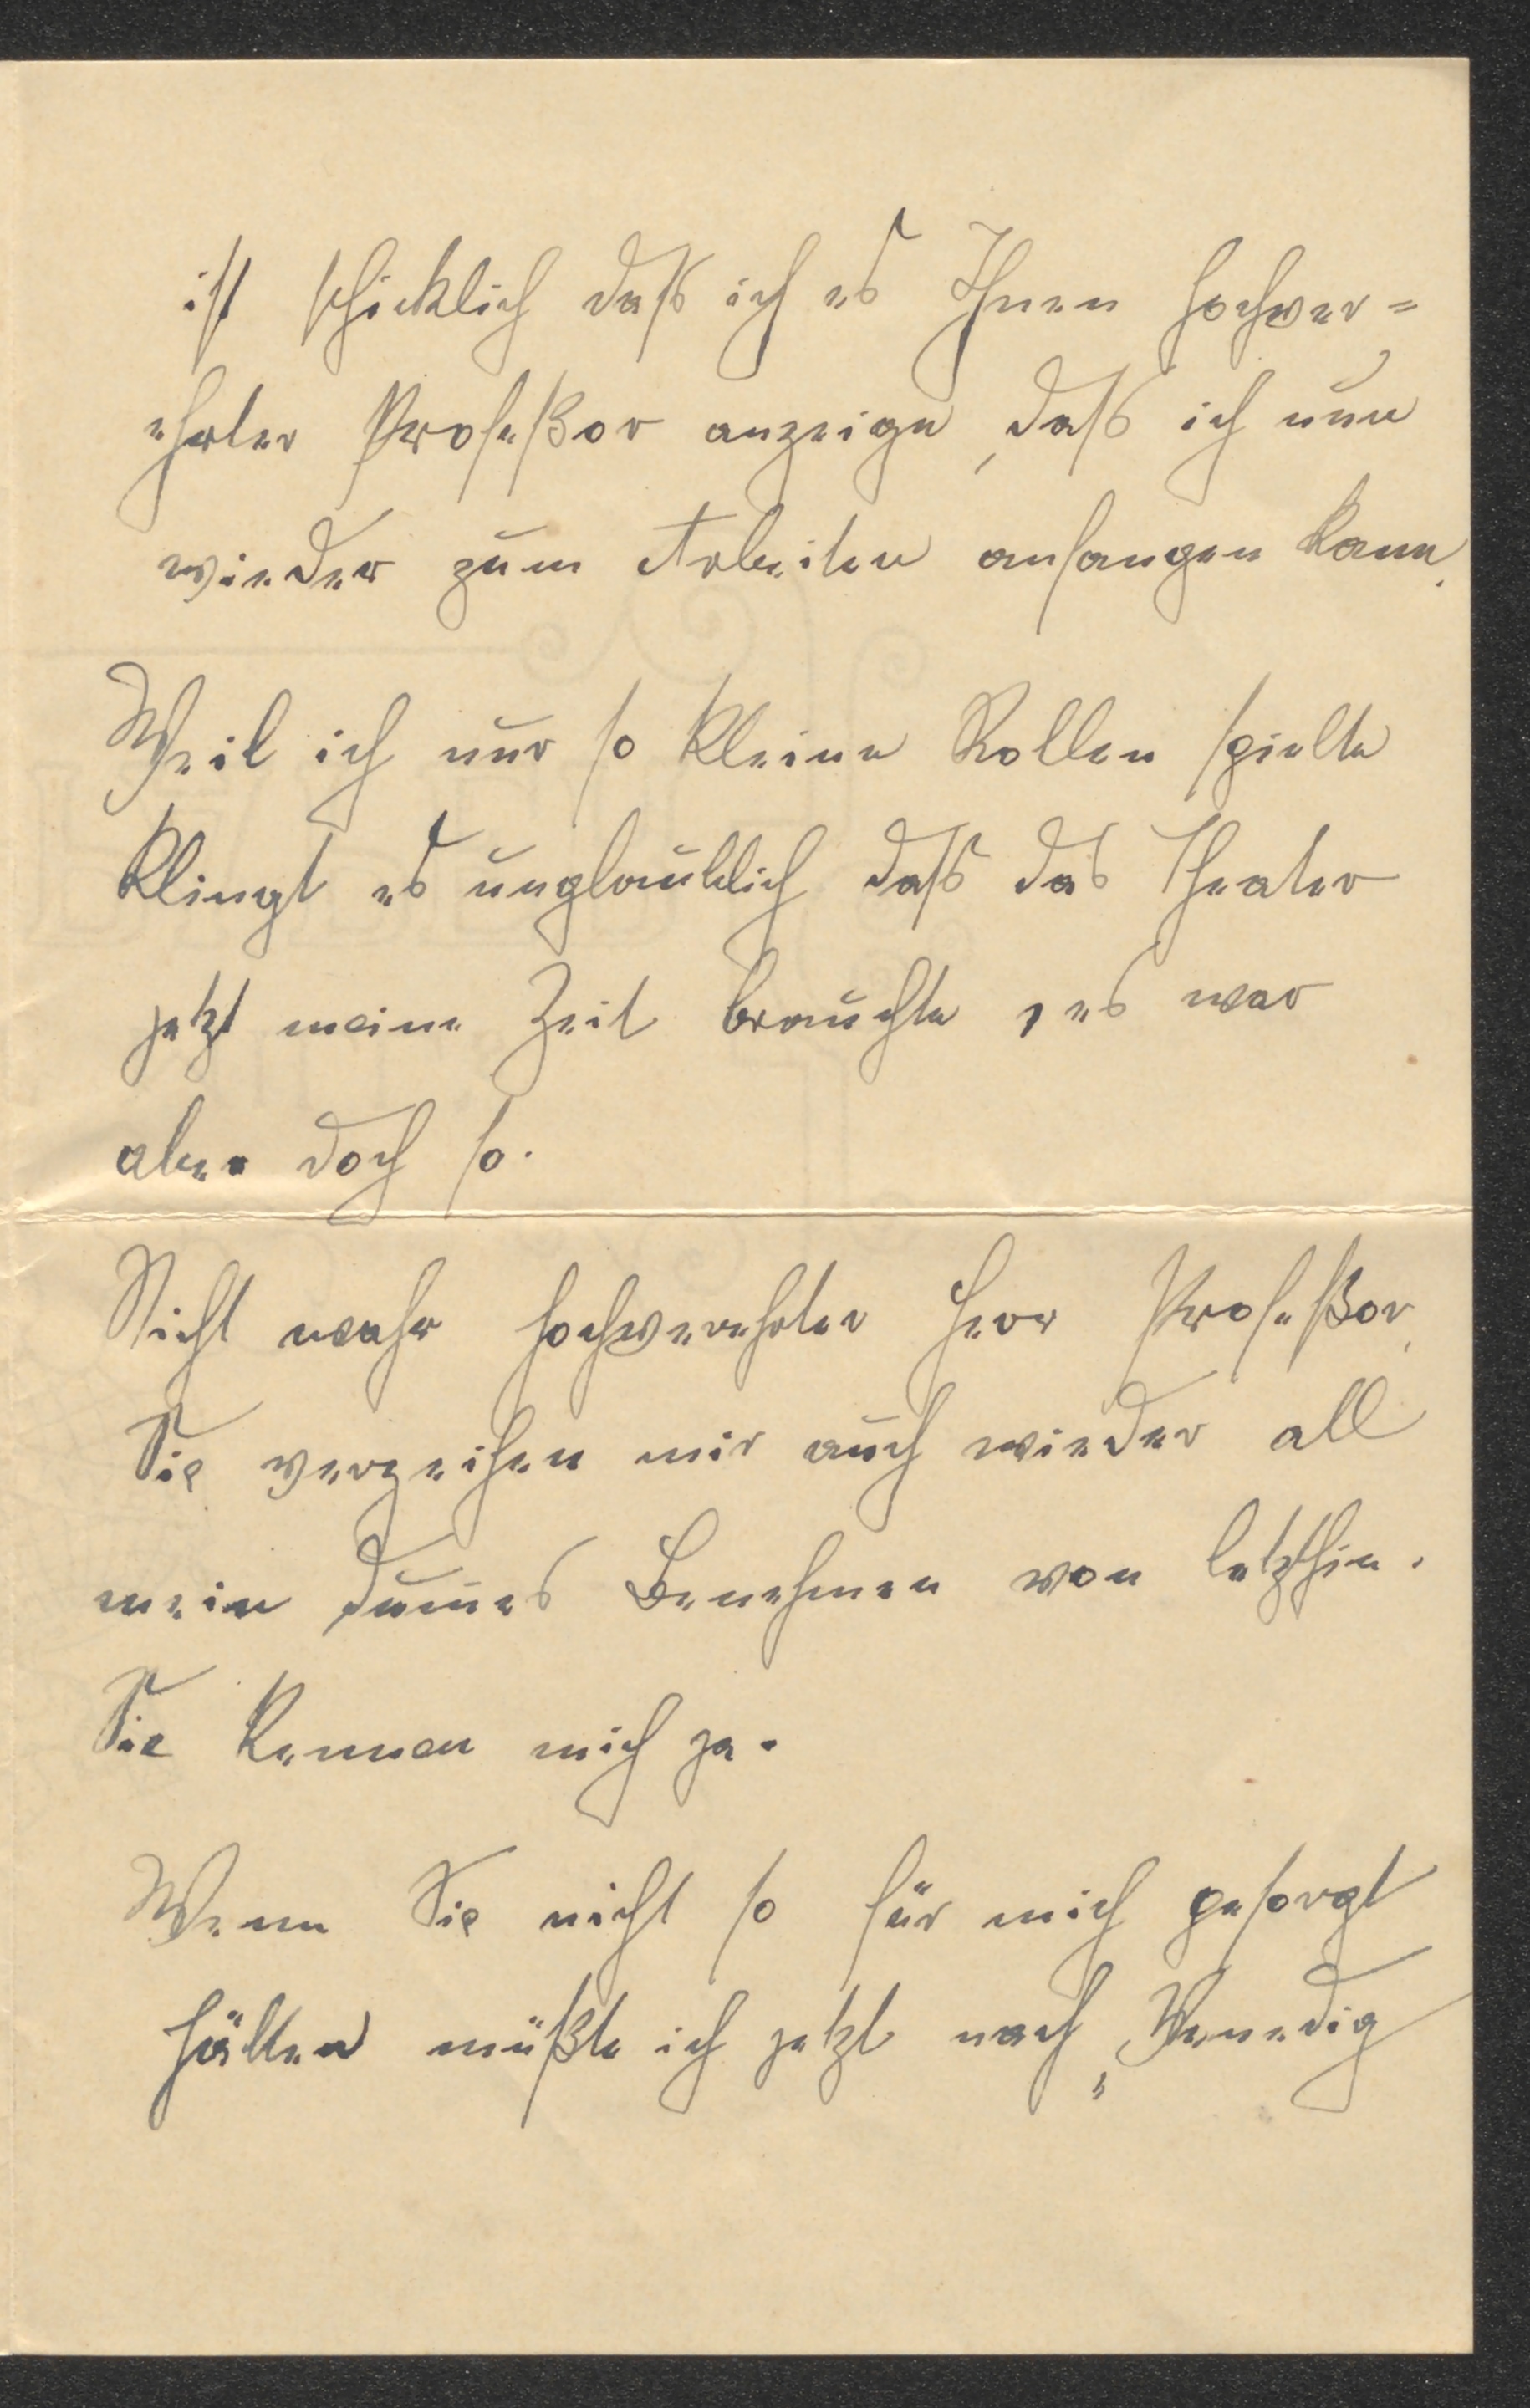 ist schicklich daß ich es Ihnen hochver=
ehrter Profeßor anzeige, daß ich nun
wieder zum Arbeiten anfangen kann.
Weil ich nur so kleine Rollen spielte
klingt es unglaublich daß das Theater
jetzt meine Zeit brauchte, es war
aber doch so.
Nicht wahr hochverehrter Herr Profeßor,
Sie verzeihen mir auch wieder all
mein dum̅es Benehmen von letzthin.
Sie kennen mich ja.
Wenn Sie nicht so für mich gesorgt
hätten müßte ich jetzt nach „Venedig